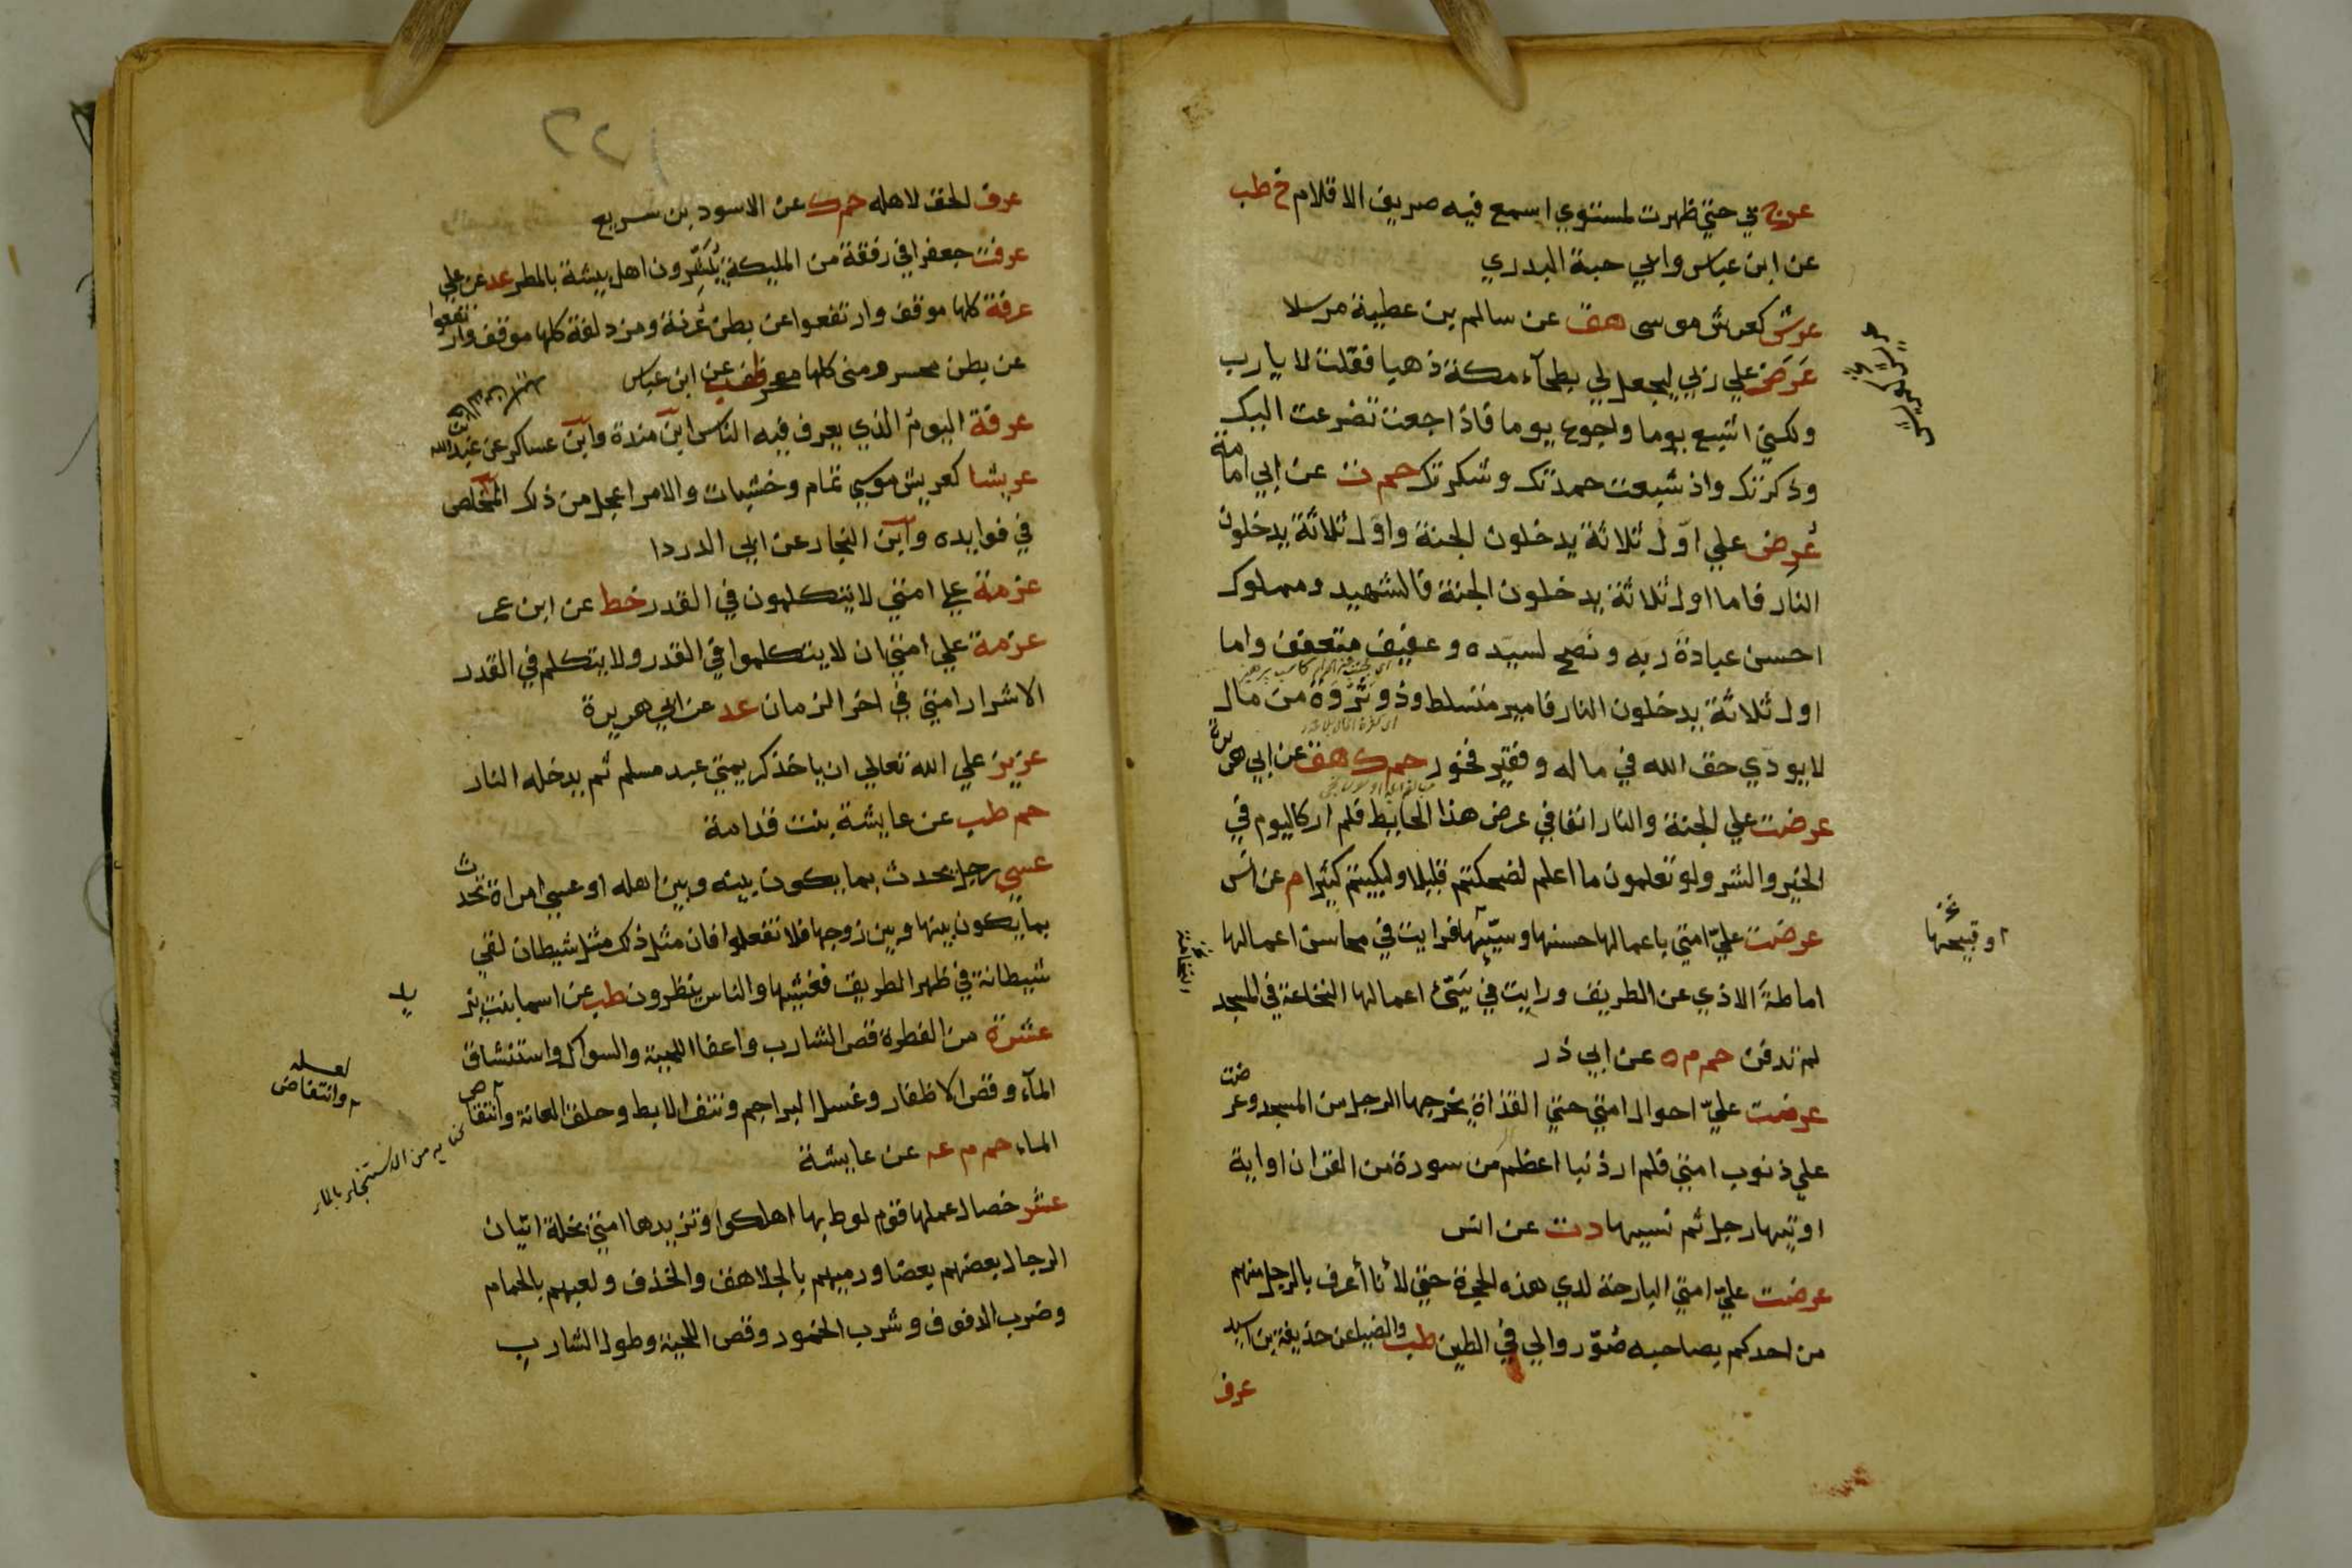 عرج بي حتي ظهرت لمستوي اسمع فيه صريف الاقلام خ طب
عن ابن عباس وابي حبة البدري
عرش كعرش موسى هق عن سالم بن عطية مرسلا
عَرَضَ علي ربي ليجعل لي بطحآء مكة ذهبا فقلت لا يا رب
ولكني اشبع يوما واجوع يوما فاذا جعت تضرعت اليك
وذكرتك واذ شبعت حمدتك وشكرتك حم ت عن ابي امامة
عُرِض علي اوّل ثلاثة يدخلون الجنة واوّل ثلاثة يدخلون
النار فاما اول ثلاثة يدخلون الجنة فالشهيد ومملوك
احسن عبادة ربه ونصح لسيّده وعفيف متعفف واما
اول ثلاثة يدخلون النار فامير متسلط وذو ثَرْوَة من مال
لا يودّي حق الله في ماله وفقير فخور حم ك هق عن ابي هريرة
عرضت علي الجنة والنار انفا في عرض هذا الحايط فلم ار كاليوم في
الخير والشر ولو تعلمون ما اعلم لضحكتم قليلا ولبكيتم كثيرا م عن انس
عرضت عليّ امتي باعمالها حسنها وسيّئها فرايت في محاسن اعمالها
اماطةَ الاذي عن الطريق ورايت في سَيّئ اعمالها النخاعة في المسجد
لم تدفن حم م ه عن ابي ذر
عرضت عليّ احوال امتي حتي القذاة يخرجها الرجل من المسجد وعرضت
علي ذنوب امتي فلم ار ذنبا اعظم من سورة من القران او اية
اوتيها رجل ثم نسيها د ت عن انس
عرضت عليّ امتي البارحة لدي هذه الحجرة حتي لأنا أعرف بالرجل منهم
من احدكم بصاحبه صُوّروا لي في الطين طب والضيا عن حذيفة بن اسيد
عرف
او قبيحها
النخامة
عرف الحق لاهله حم ك عن الاسود بن سريع
عرفت جعفرا في رفقة من المليكة يُبَشِّرون اهل بيشة بالمطر عد عن علي
عرفة كلها موقف وارتفعوا عن بطن عُرنة ومزدلفة كلها موقف وارتفعوا
عن بطن محسر ومنى كلها منحر طب عن ابن عباس
عرفة اليوم الذي يعرف فيه الناس ابن مندة وابن عساكر عن عبد الله
عريشا كعريش موسي ثمام وخشيبات والامر اعجل من ذلك المخلص
في فوايده وابن النجار عن ابي الدردا
عزمة علي امتي لا يتكلمون في القدر خط عن ابن عمر
عزمة علي امتي ان لا يتكلموا في القدر ولا يتكلم في القدر
الا شرار امتي في اخر الزمان عد عن ابي هريرة
عزيز علي الله تعالي ان ياخذ كريمتي عبد مسلم ثم يدخله النار
حم طب عن عايشة بنت قدامة
عسي رجل يحدث بما يكون بينه وبين اهله او عسي امراة تحدث
بما يكون بينها وبين زوجها فلا تفعلوا فان مثل ذلك مثل شيطان لقي
شيطانة في ظهر الطريق فغشيها والناس ينظرون طب عن اسما بنت يزيد
عشرة من الفطرة قص الشارب واعفا اللحية والسواك واستنشاق
المآء وقص الاظفار وغسل البراجم ونتف الابط وحلق العانة وانتقاص
الماء حم م عه عن عايشة
عشر خصال عملها قوم لوط بها اهلكوا وتزيدها امتي بخلة اتيان
الرجال بعضهم بعضا ورميهم بالجلاهق والخذف ولعبهم بالحمام
وضرب الدفوف وشرب الخمور وقص اللحية وطول الشارب
لعله
وانتفاض
كنايه من الاستنجاء بالماء